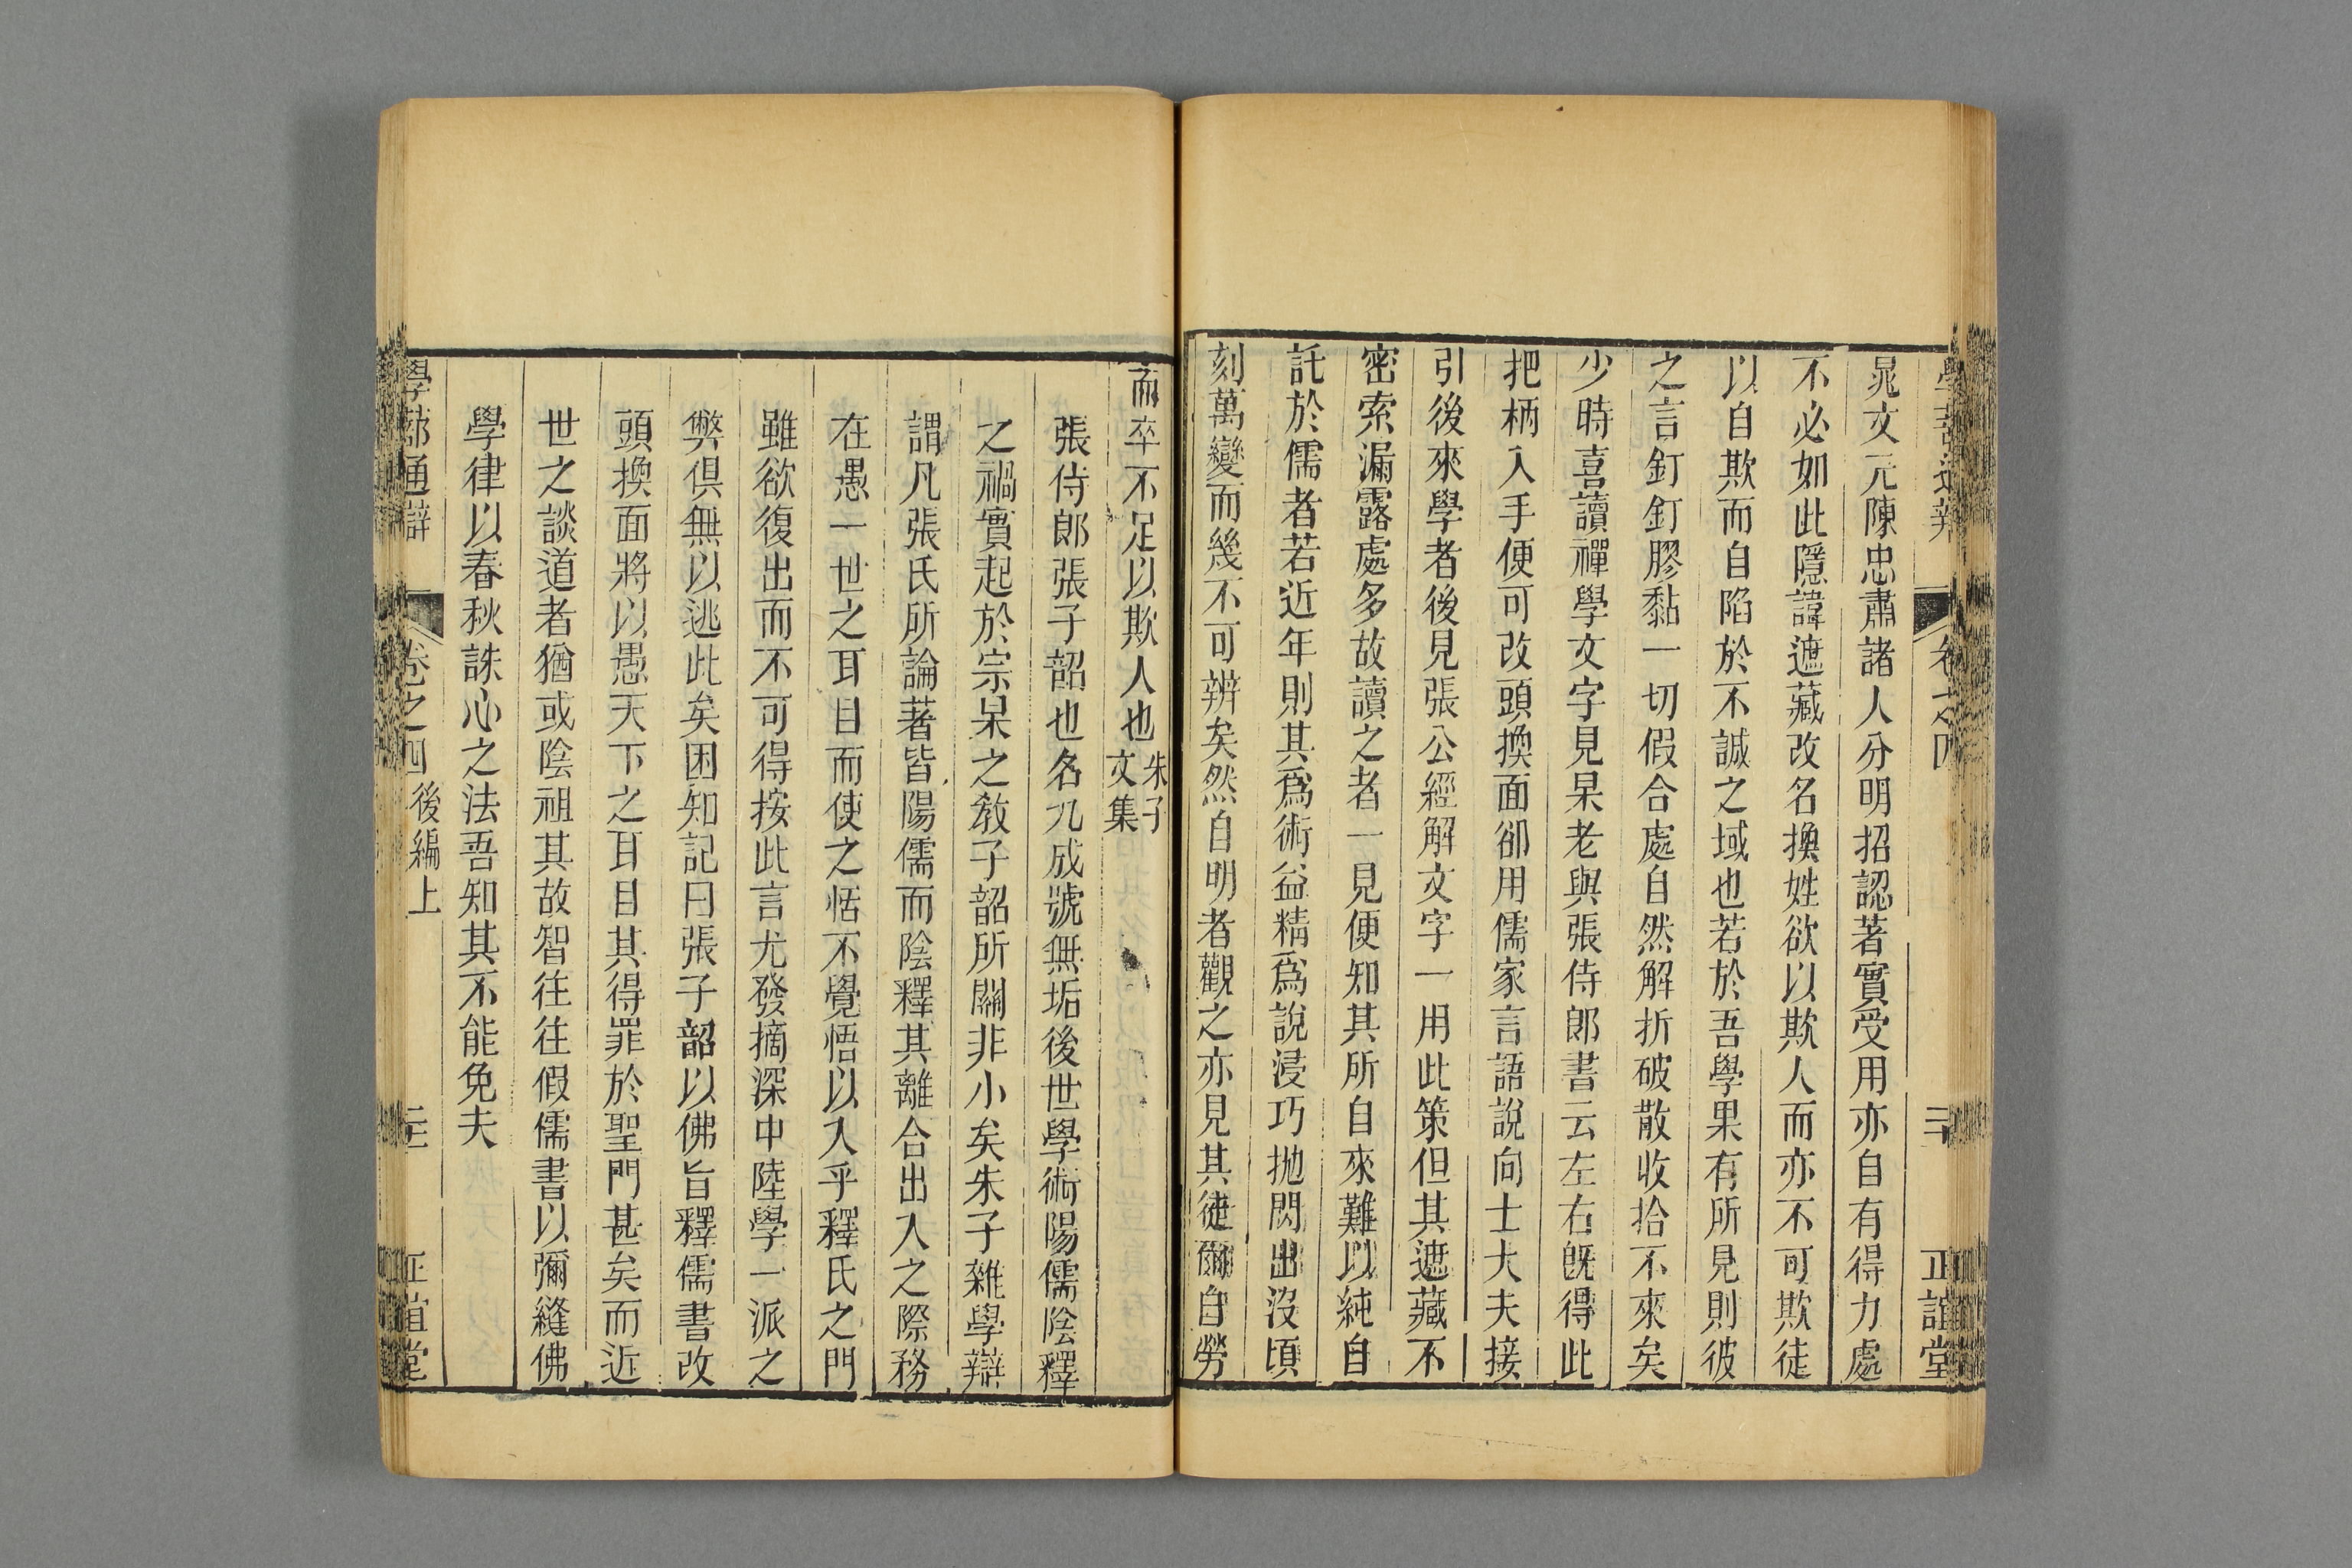 晁文元陳忠肅諸人分明招認著實受用亦自有得力處
不必如此隱諱遮藏改名換姓欲以欺人而亦不可欺徒
以自欺而自陷於不誠之域也若於吾學果有所見則彼
之言釘釘膠黏一切假合處自然解折破散收拾不來矣
少時喜讀禪學文字見杲老與張侍郎書云左右旣得此
把柄入手便可改頭換面卻用儒家言語說向士大夫接
引後來學者後見張公經解文字一用此策但其遮藏不
密索漏露處多故讀之者一見便知其所自來難以純自
託於儒者若近年則其爲術益精爲說浸巧抛閃出沒頃
刻萬變而幾不可辨矣然自明者觀之亦見其徒爾自勞
而卒不足以欺人也朱子文集
張侍郎張子韶也名九成號無垢後世學術陽儒陰釋
之禍實起於宗杲之敎子韶所關非小矣朱子雜學辯
謂凡張氏所論著皆陽儒而陰釋其離合出入之際務
在愚一世之耳目而使之恬不覺悟以入乎釋氏之門
雖欲復出而不可得按此言尤發摘深中陸學一派之
弊俱無以逃此矣困知記曰張子韶以佛旨釋儒書改
頭換面將以愚天下之耳目其得罪於聖門甚矣而近
世之談道者猶或陰祖其故智往往假儒書以彌縫佛
學律以春秋誅心之法吾知其不能免夫
學蔀通辯 卷之四 後編上 正誼堂